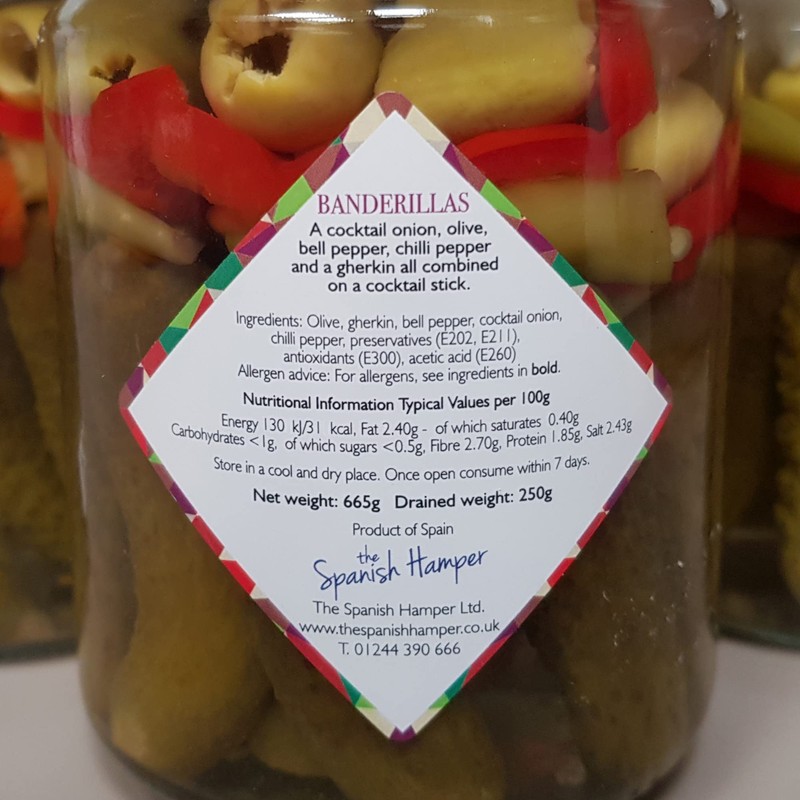 BANDERILLAS
A cocktail onion, olive,
bell pepper, chilli pepper
and a gherkin all combined
on a cocktail stick.
Ingredients: Olive, gherkin, bell pepper, cocktail onion,
chilli pepper, preservatives (E202, E211),
antioxidants (E300), acetic acid (E260)
Allergen advice: For allergens, see ingredients in bold.
Nutritional Information Typical Values per 100g
Energy 130 kJ/31 kcal, Fat 2.40g - of which saturates 0.40g
Carbohydrates <1g, of which sugars <0.5g, Fibre 2.70g, Protein 1.85g, Salt 2.43g
Store in a cool and dry place. Once open consume within 7 days.
Net weight: 665g Drained weight: 250g
Product of Spain
the
Spanish Hamper
The Spanish Hamper Ltd.
www.thespanishhamper.co.uk
T. 01244 390 666